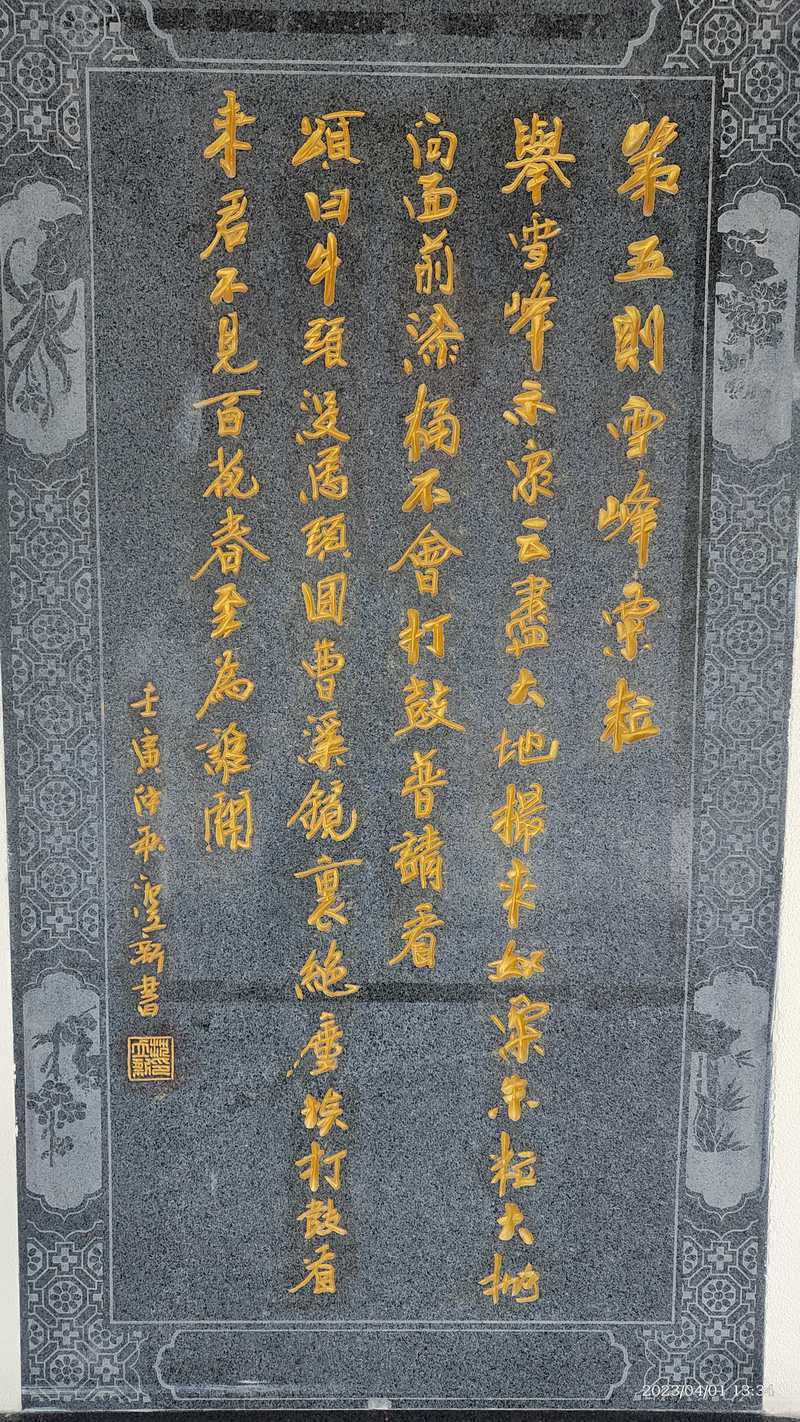 第五則雪峰粟粒
舉雪峰示眾云盡大地撮來如粟米粒大拋
向面前漆桶不會打鼓普請看
頌曰牛頭沒馬頭回曹溪鏡裏絕塵埃打鼓看
來君不見百花春至為誰開
壬寅仲秋 新書
2023/04/01 13:3